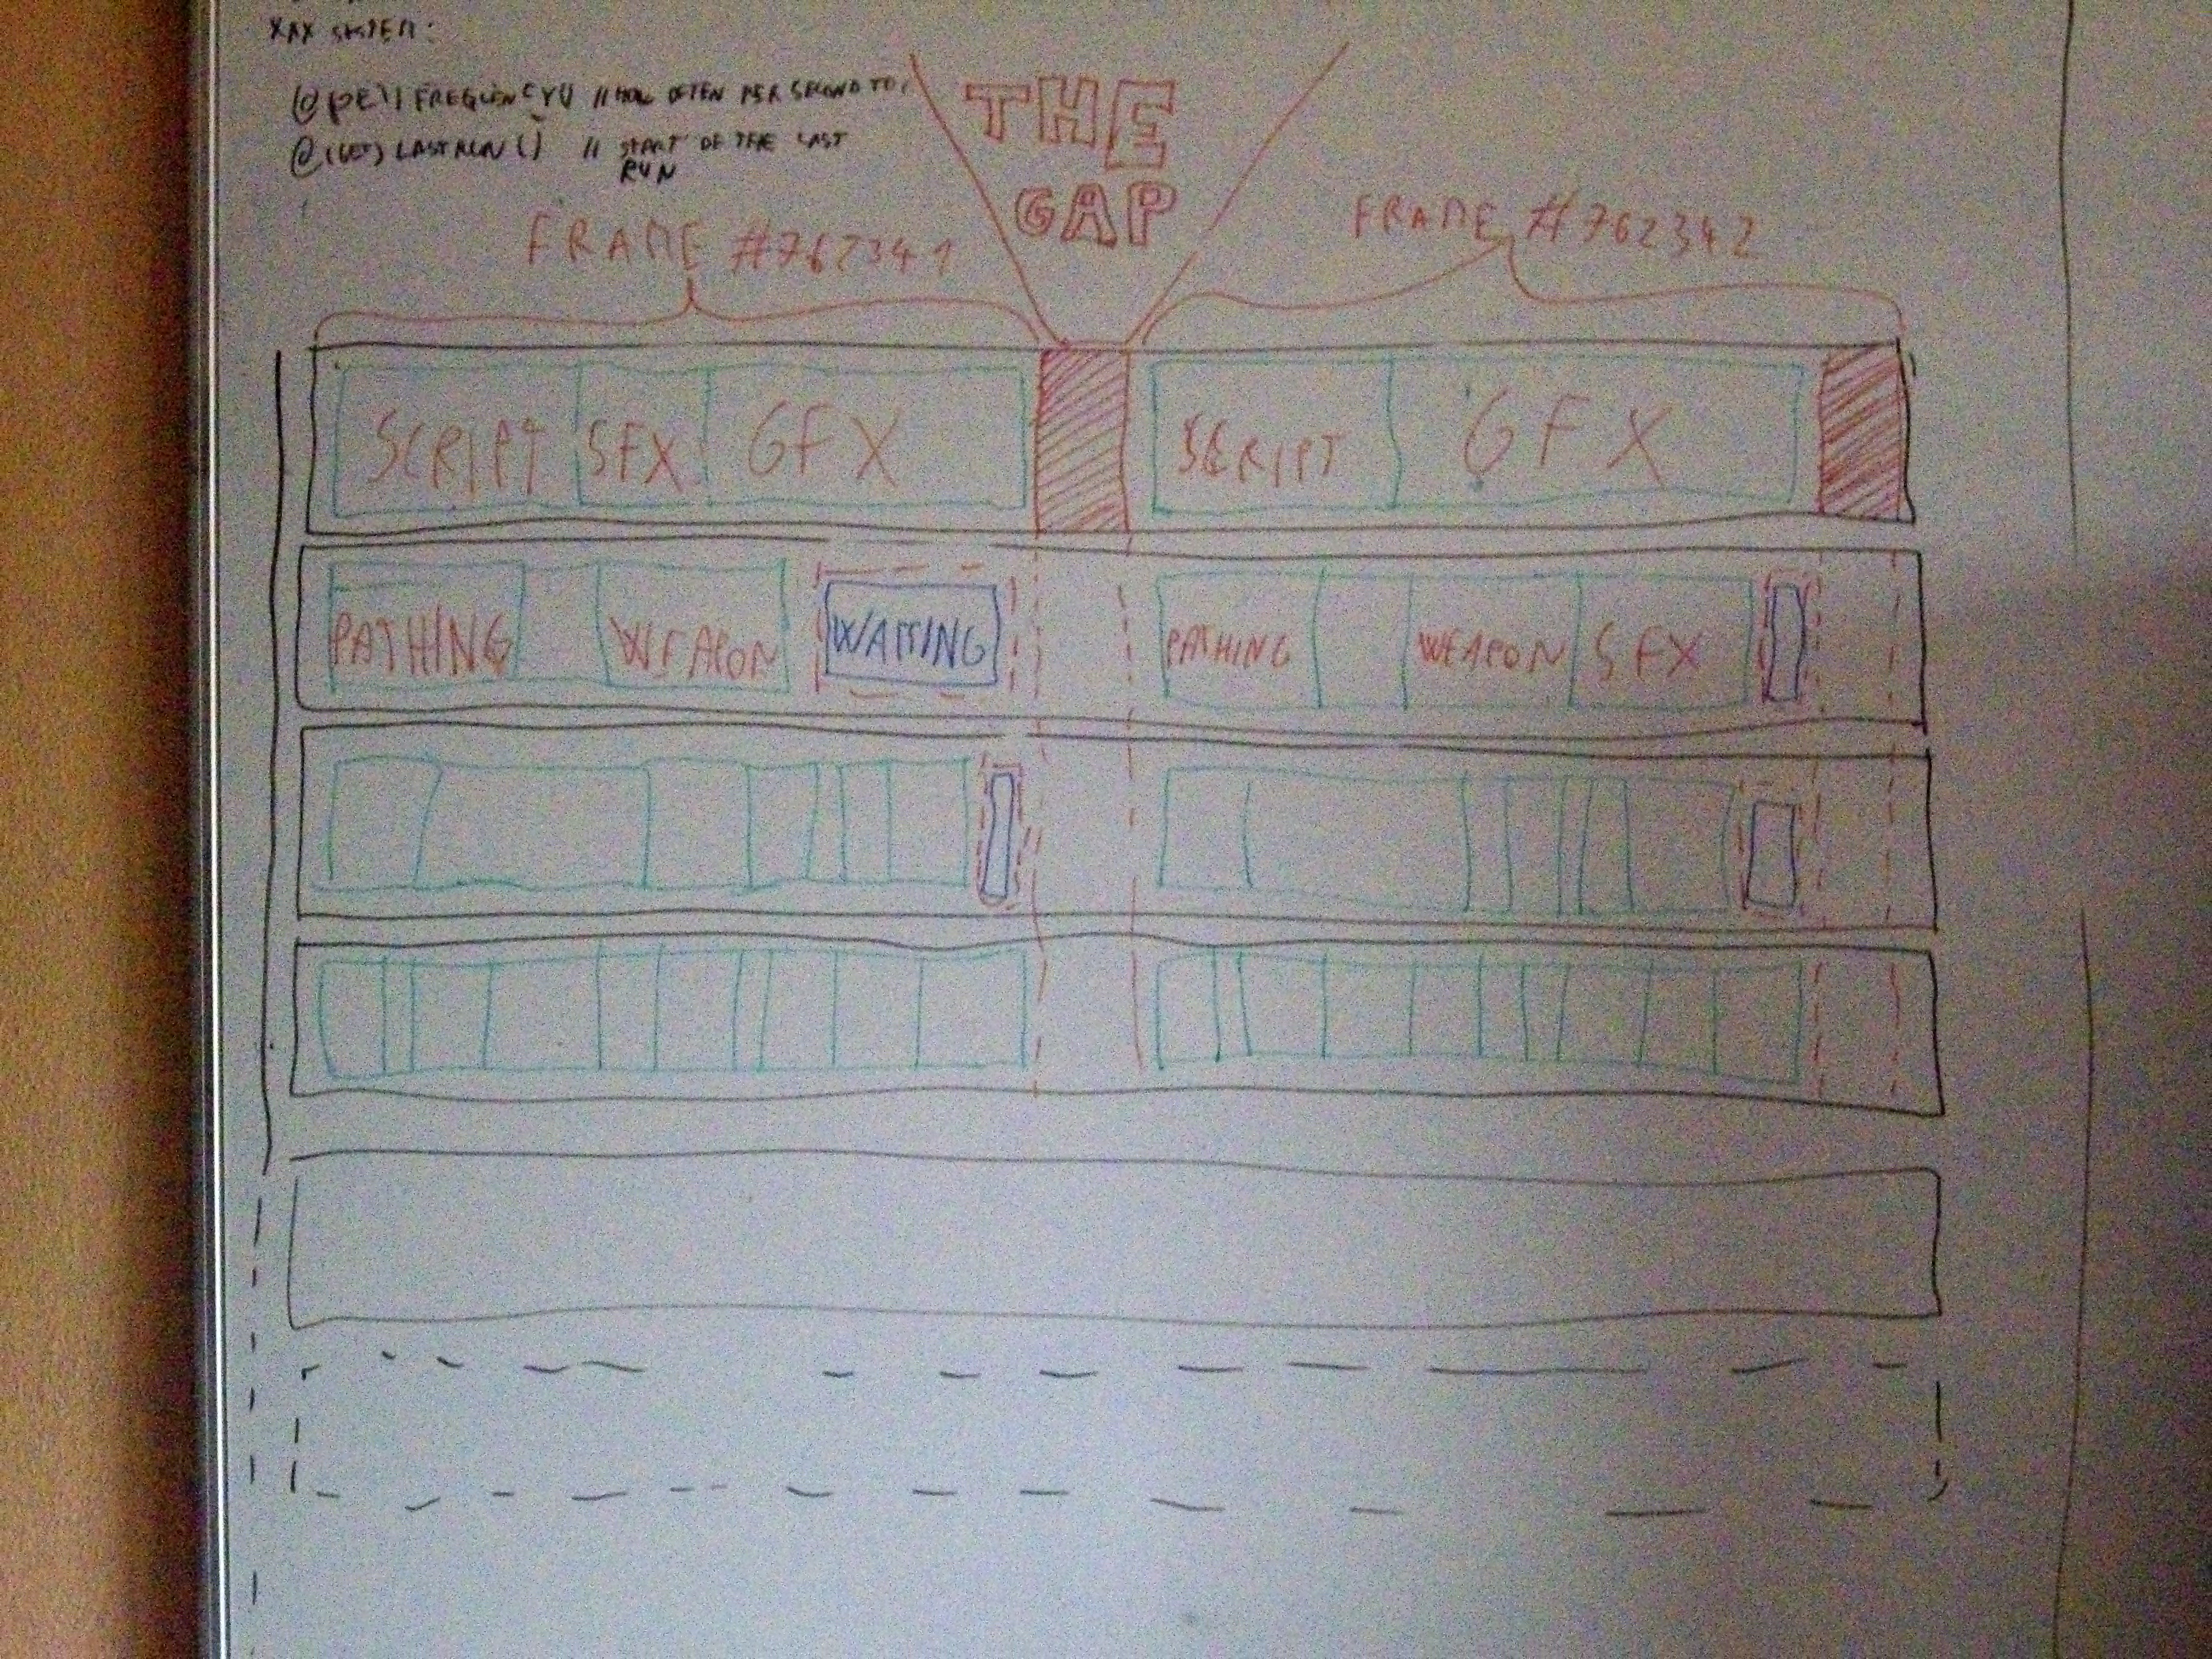 SYSTEM:
FREQUENCY() // HOW OFTEN PER SECOND TO
@(GET) LASTRUN() // START OF THE LAST
RUN
THE
GAP
FRAME #762341
FRAME #762342
SCRIPT SFX GFX
SCRIPT GFX
PATHING WEAPON WAITING
PATHING WEAPON SFX